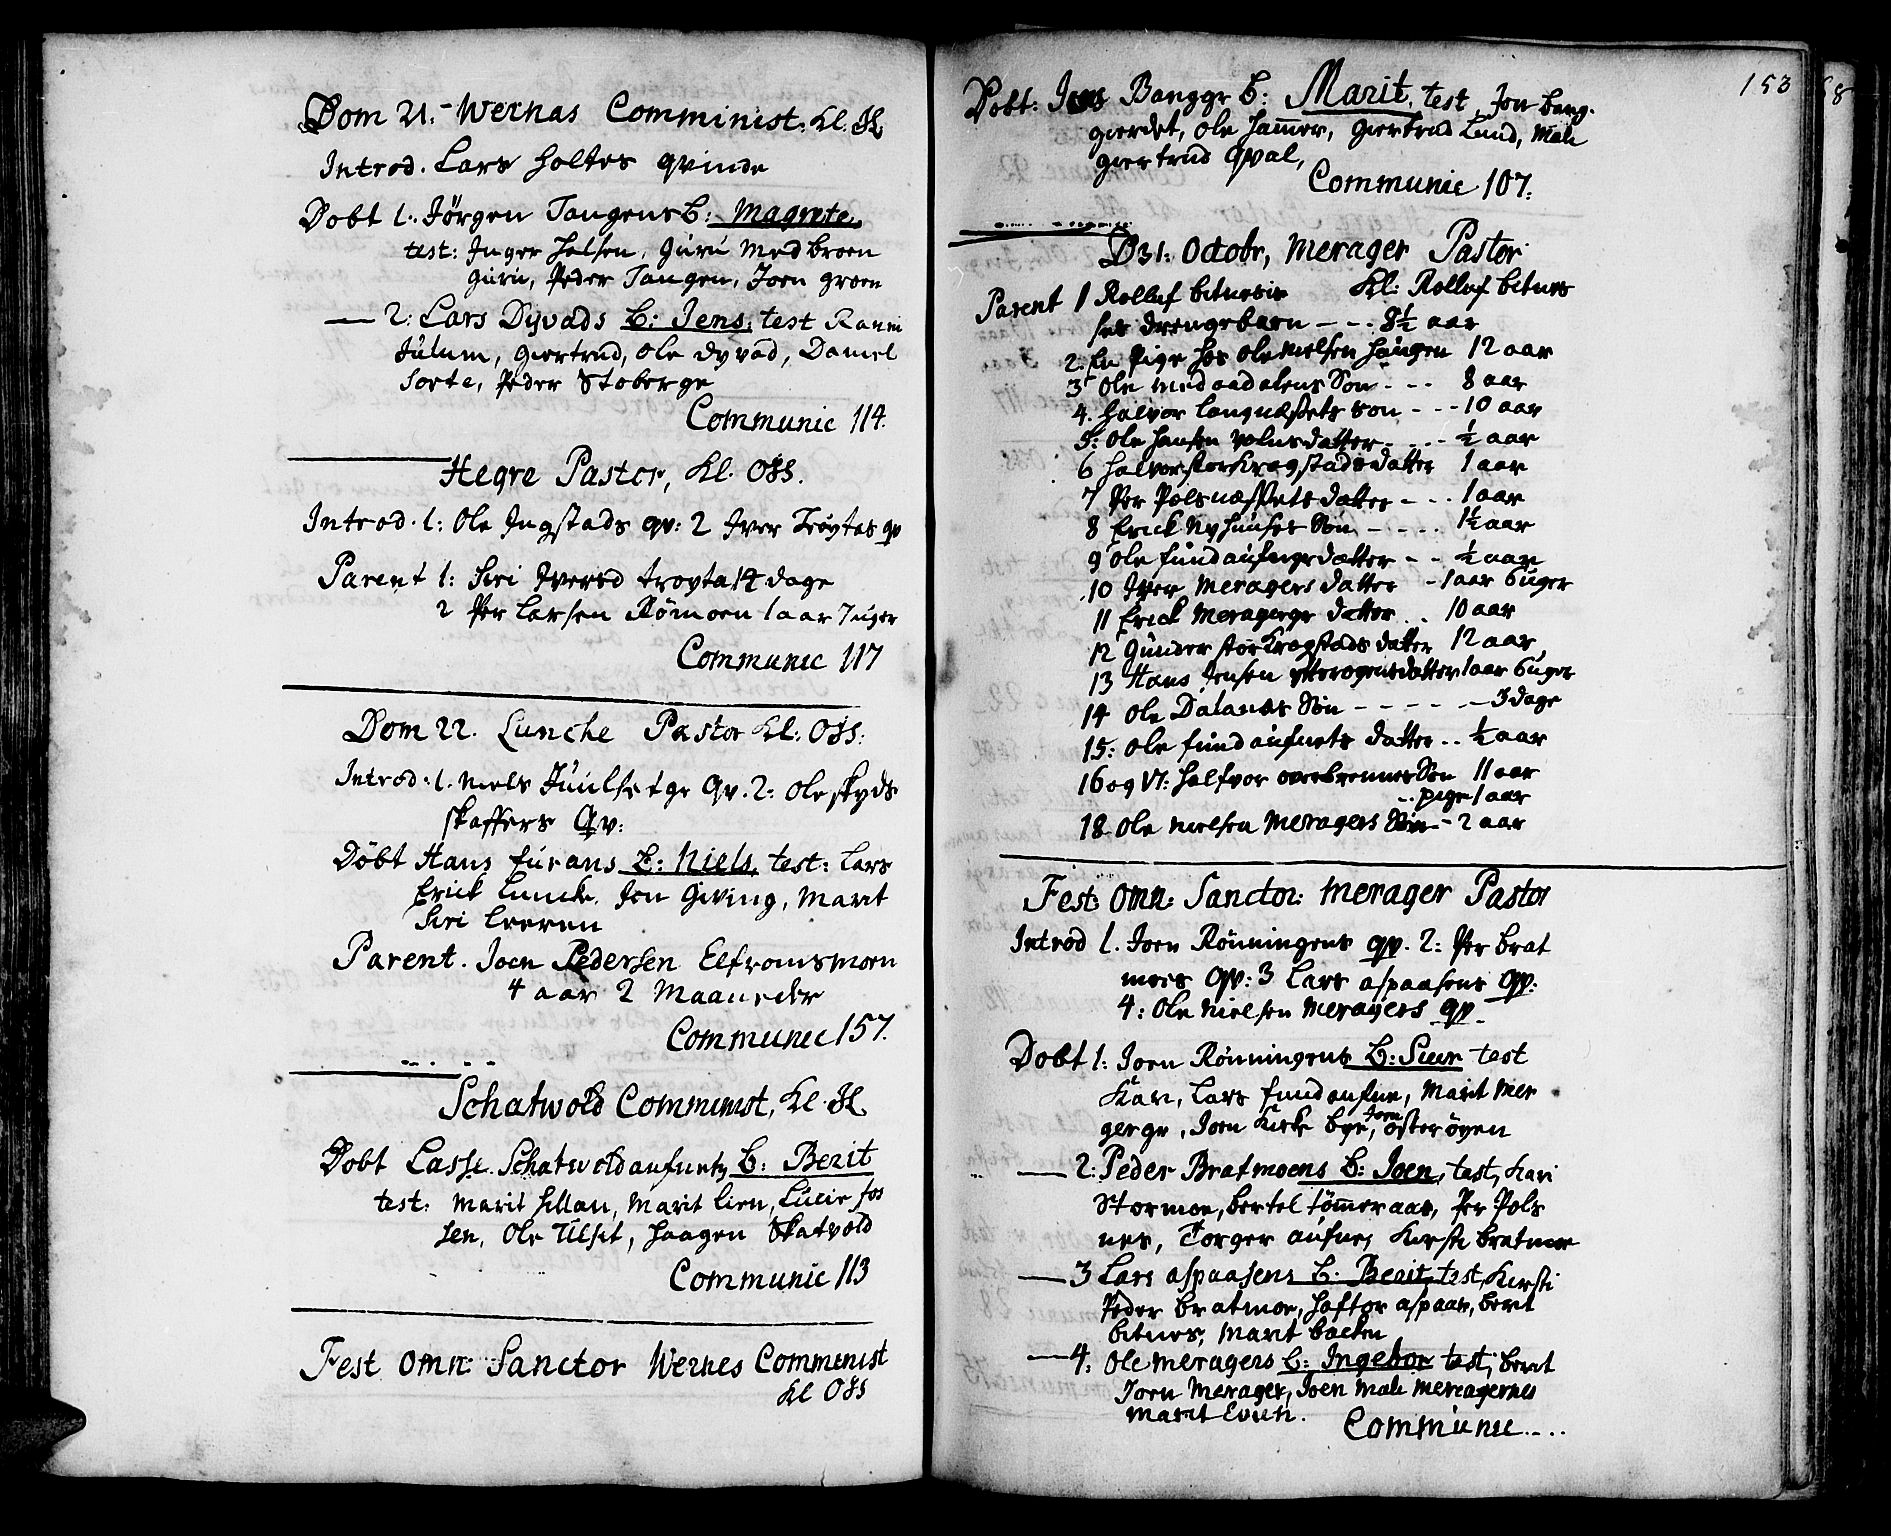 Dom 21. Wernas Comminist. Kl.
Introd. Lars Holtes qvinde
Døbt 1. Jørgen Tangens B: Magrete,
test: Inger Halsen, Guru Medbroen
Guru, Peder Tangen, Joen groen
2: Lars Dyvads B: Jens, test
Julum, Giertrud, Ole dyvad, Daniel
Sorte, Peder Stoberge
Communic 114.
Hegre Pastor, Kl.
Introd. 1: Ole Ingstads qv: 2 Iver Trøytes qv
Parent 1: Siri Iversd troyta 14 dage
2 Per Larsen Rømoen 1 aar 7 uger
Communic 117
Dom 22. Luncke Pastor Kl:
Introd: 1. Niels qv. 2: Ole skyds
skaffers qv:
Døbt Hans furans B: Niels, test: Lars
Erick Luncke, Jon Giving, Marit
Siri Leeren
Parent. Joen Pedersen Elframsmoen
4 aar 2 Maaneder
Communic 157.
Schatwold Commenist, Kl.
Døbt Lasse Schatwoldaufnets B: Berit
test: Marit sillan, Marit lien, Lucie fos
sen, Ole Ulsit, Haagen Skatvold
Communic 113
Fest omn: Sanctor Wernes Commenist
Kl
153
Døbt: Jens Bangge B: Marit, test Jon bang-
gierdet, Ole Hammer, giertrud Lund, Mali
giertrud qval,
Communic 107.
D 31. Octobr, Merager Pastor
Parent 1 Rolluf bitnesie Kl: Rolluf bitnes
ses drengebarn - - - 8½ aar
2: En Pige hos Ole Nielsen haugen 12 aar
3 Ole medaadalens Søn - - - 8 aar
4. Halvor langnæssets Søn - - - 10 aar
5: Ole Hansen volnsdatter - - - ½ aar
6 Halvor storkragstads datter 1 aar
7 Per Polsnæssets datter - - - 1 aar
8 Erick Nyhuuses Søn - - - - 1½ aar
9 Ole fundaufnes datter - - ½ aar
10 Iver Meragers datter - 1 aar 6 uger
11 Erick Meragergr datter . . 10 aar
12 Gunder storkragstads datter 12 aar
13 Hans Jensen datter 1 aar 6 uger
14 Ole Dalands Søn - - - - - - 3 dage
15: Ole fundaufnets datter . . ½ aar
16 og 17: Halfvor overbrennes Søn 11 aar
- - pige 1 aar
18 Ole Nielsen Meragers Søn - 2 aar
Fest: omn: Sanctor: Merager Pastor
Introd 1. Joen Rønningens qv. 2: Per brat
moes qv: 3 Lars aspaasens qv:
4: Ole Nielsen Meragers qv
Døbt 1: Joen Rønningens B: Siver test
Kari, Lars fundaufne, Marit Mer
gergr, Joen Kirkebye, Joen østerøyen
2: Peder Bratmoens B: Joen, test, Kari
Stormoe, bertel tømmeraas, Per Pols
nes, Torger aufne, Kirsti bratmoe
3 Lars aspaasens B: Berit, test, Kirsti
Peder bratmoe, Haftor aspaas, berit
bitnes, Marit backen
4: Ole Meragers B: Ingebor test, berit
Joen Merager, Joen Mali Meragernes
Marit Evien.
Communic. . . .